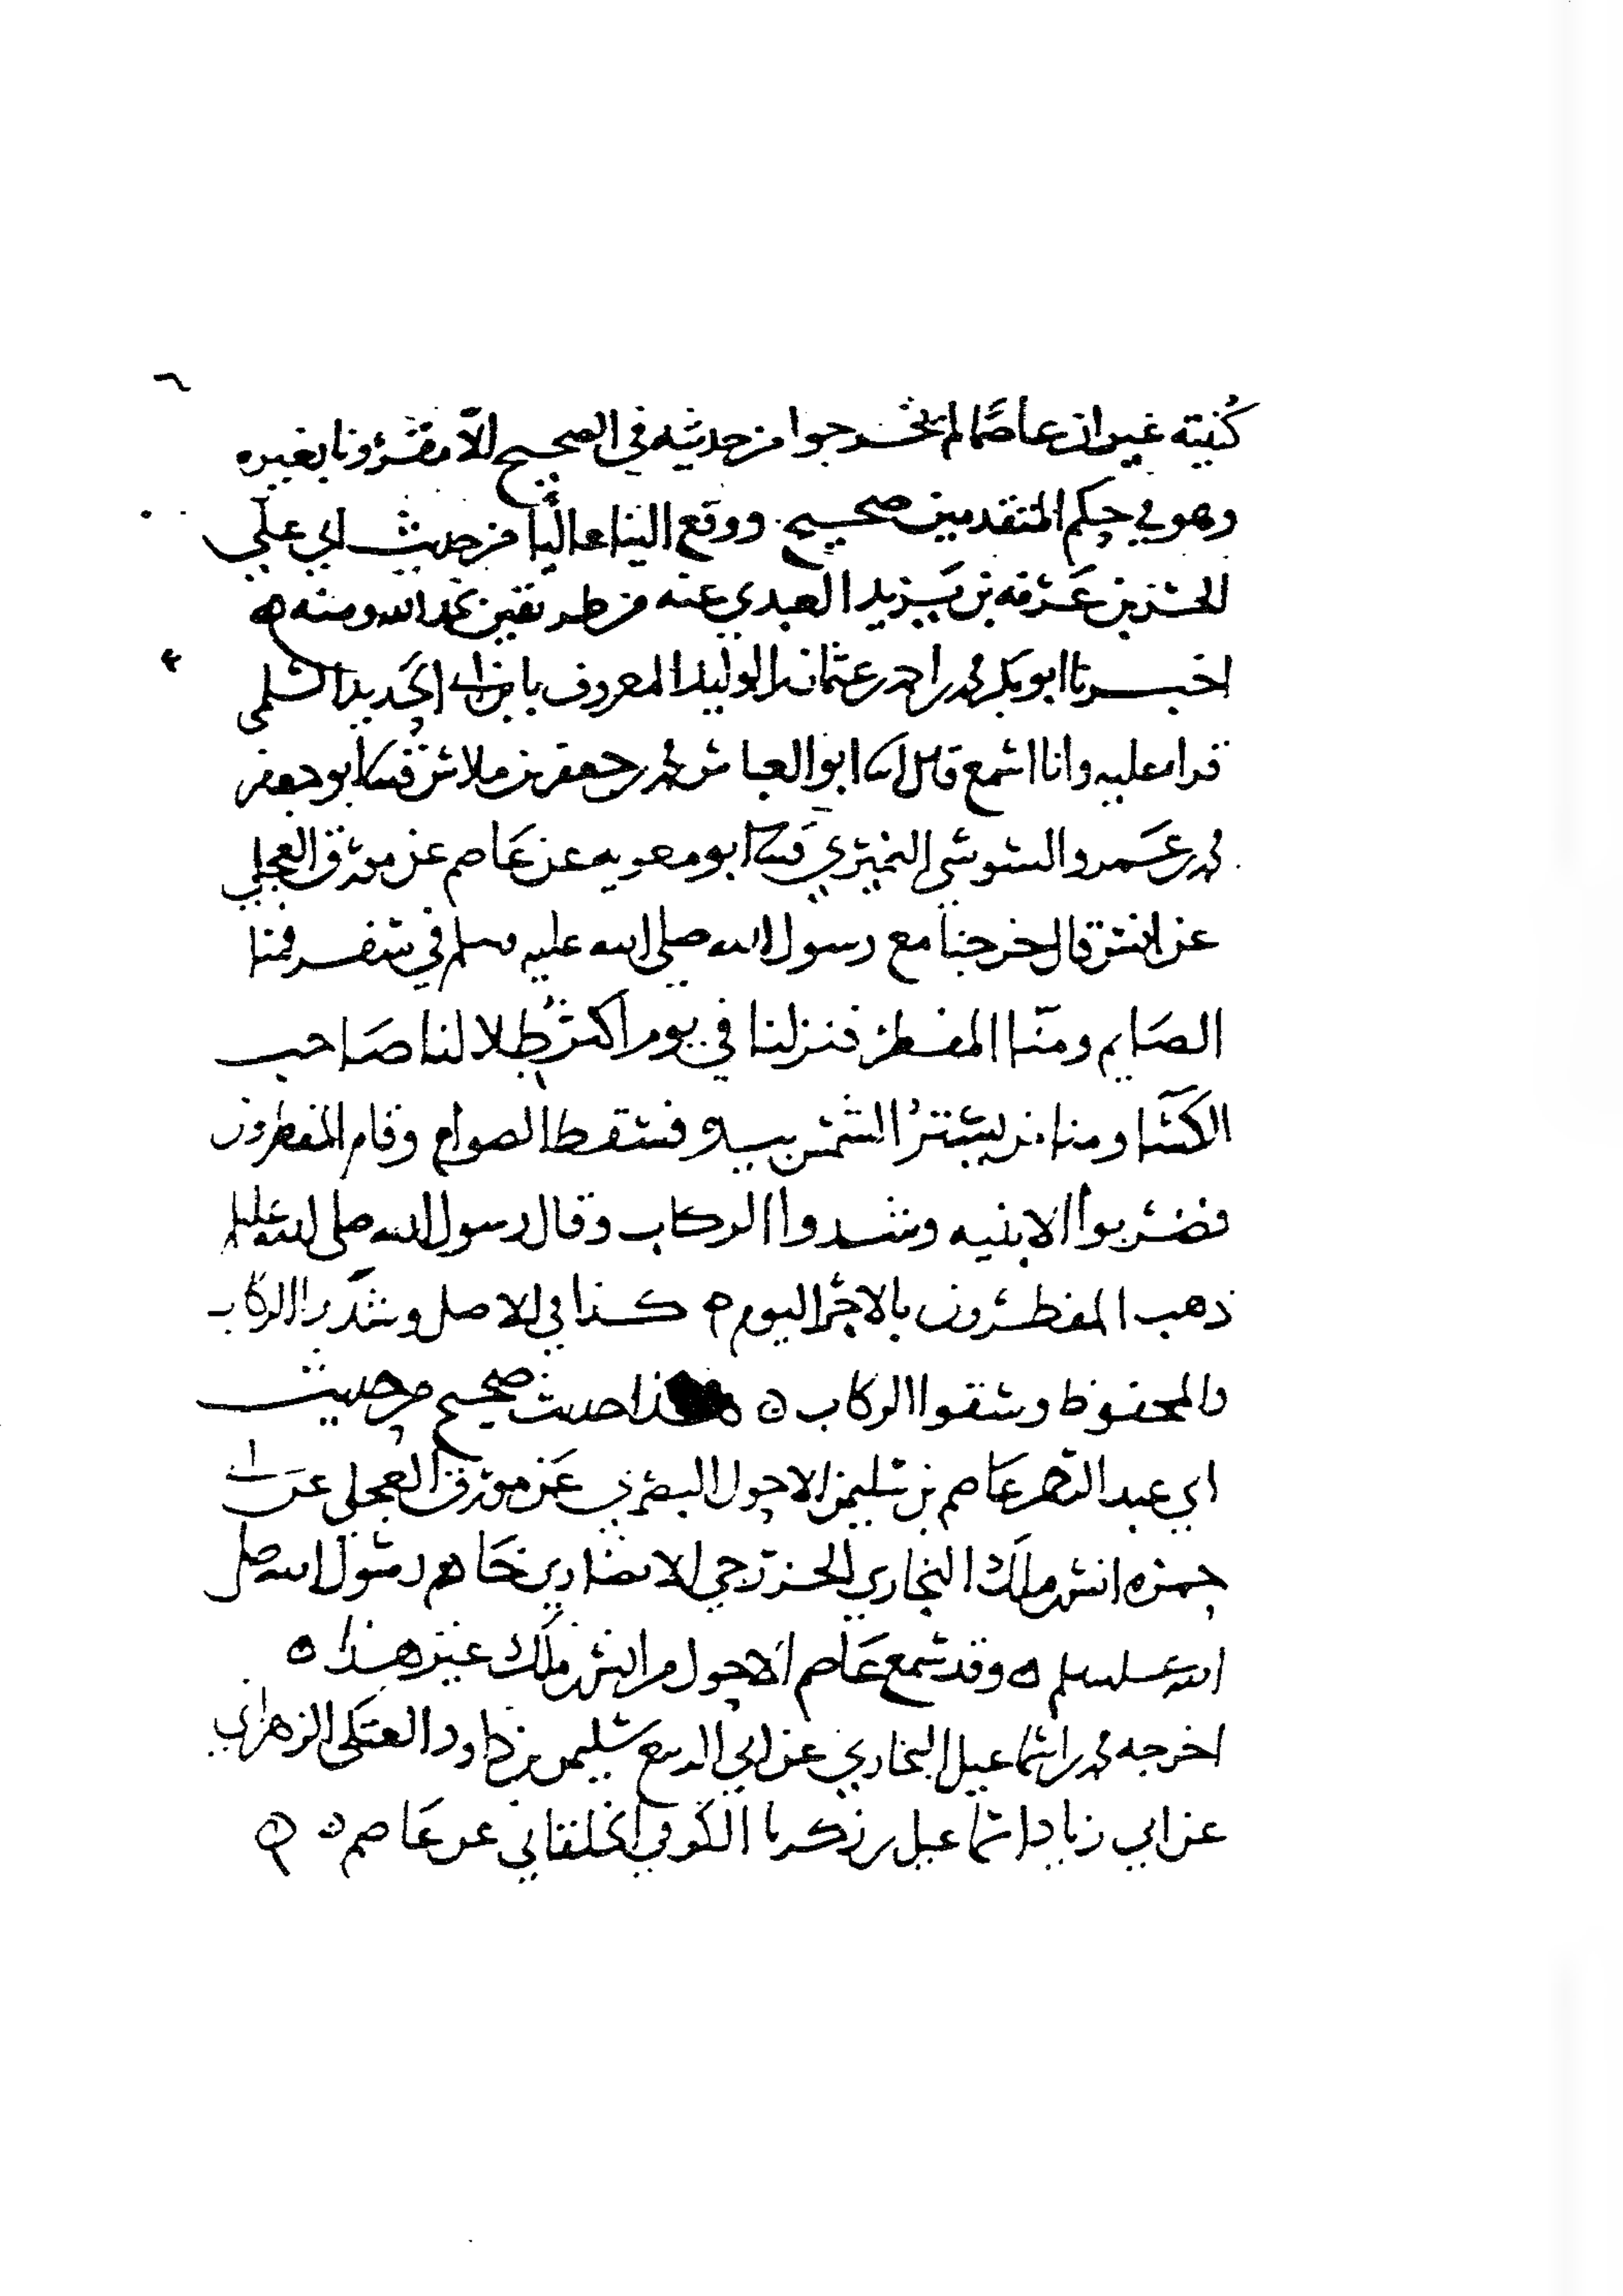 كُنيته غير ان عاصمًا لم يخرجوا من حديثه في الصحيح الّا مقرونا بغيره
وهو في حكم المتقدمين صحيح ووقع الينا عاليًا من حديث ابي علي
الحسن بن عَرَفه بن يَزيد العبدي عنه من طريقين بحمد الله ومنه
اخبرنا ابو بكر محمد بن احمد بن عثمان بن الوليد المعروف بابن ابي الحديد السلمي
قراه عليه وانا اسمع قال ابنا ابو العباس محمد بن جعفر بن ملاس ثنا ابو جعفر
محمد بن عمرو السوسي النميري ثنا ابو معويه عن عَاصم عن مورق العجلي
عن انس قال خرجنا مع رسول الله صلى الله عليه وسلم في سفر فمنا
الصَايم ومنّا المفطر فنزلنا في يوم اكثرُ ظلا لنا صَاحب
الكسَا ومنا من يستترُ الشمس بيده فسقط الصوام وقام المفطرون
فضربوا الابنيه وشدوا الركاب وقال رسول الله صلى الله عليه وسلم
ذهب المفطرون بالاجر اليوم كذا في الاصل وشدّوا الركاب
والمحفوظ وسقوا الركاب هذا حديث صحيح من حديث
ابي عبد الرحمن عَاصم بن سليمن الاحول البصري عَن مورق العجلي عن ابي
حمزه انس بن ملك النجاري الخزرجي الانصاري خَادم رسول الله صلى
الله عليه وسلم وقد سمع عَاصم الاحول من انس بن ملك غير هذا
اخرجه محمد بن اسماعيل البخاري عن ابي الربيع سليمن بن داود العتكي الزهراني
عن ابي زياد اسماعيل بن زكريا الكوفي الخلقاني عن عَاصم